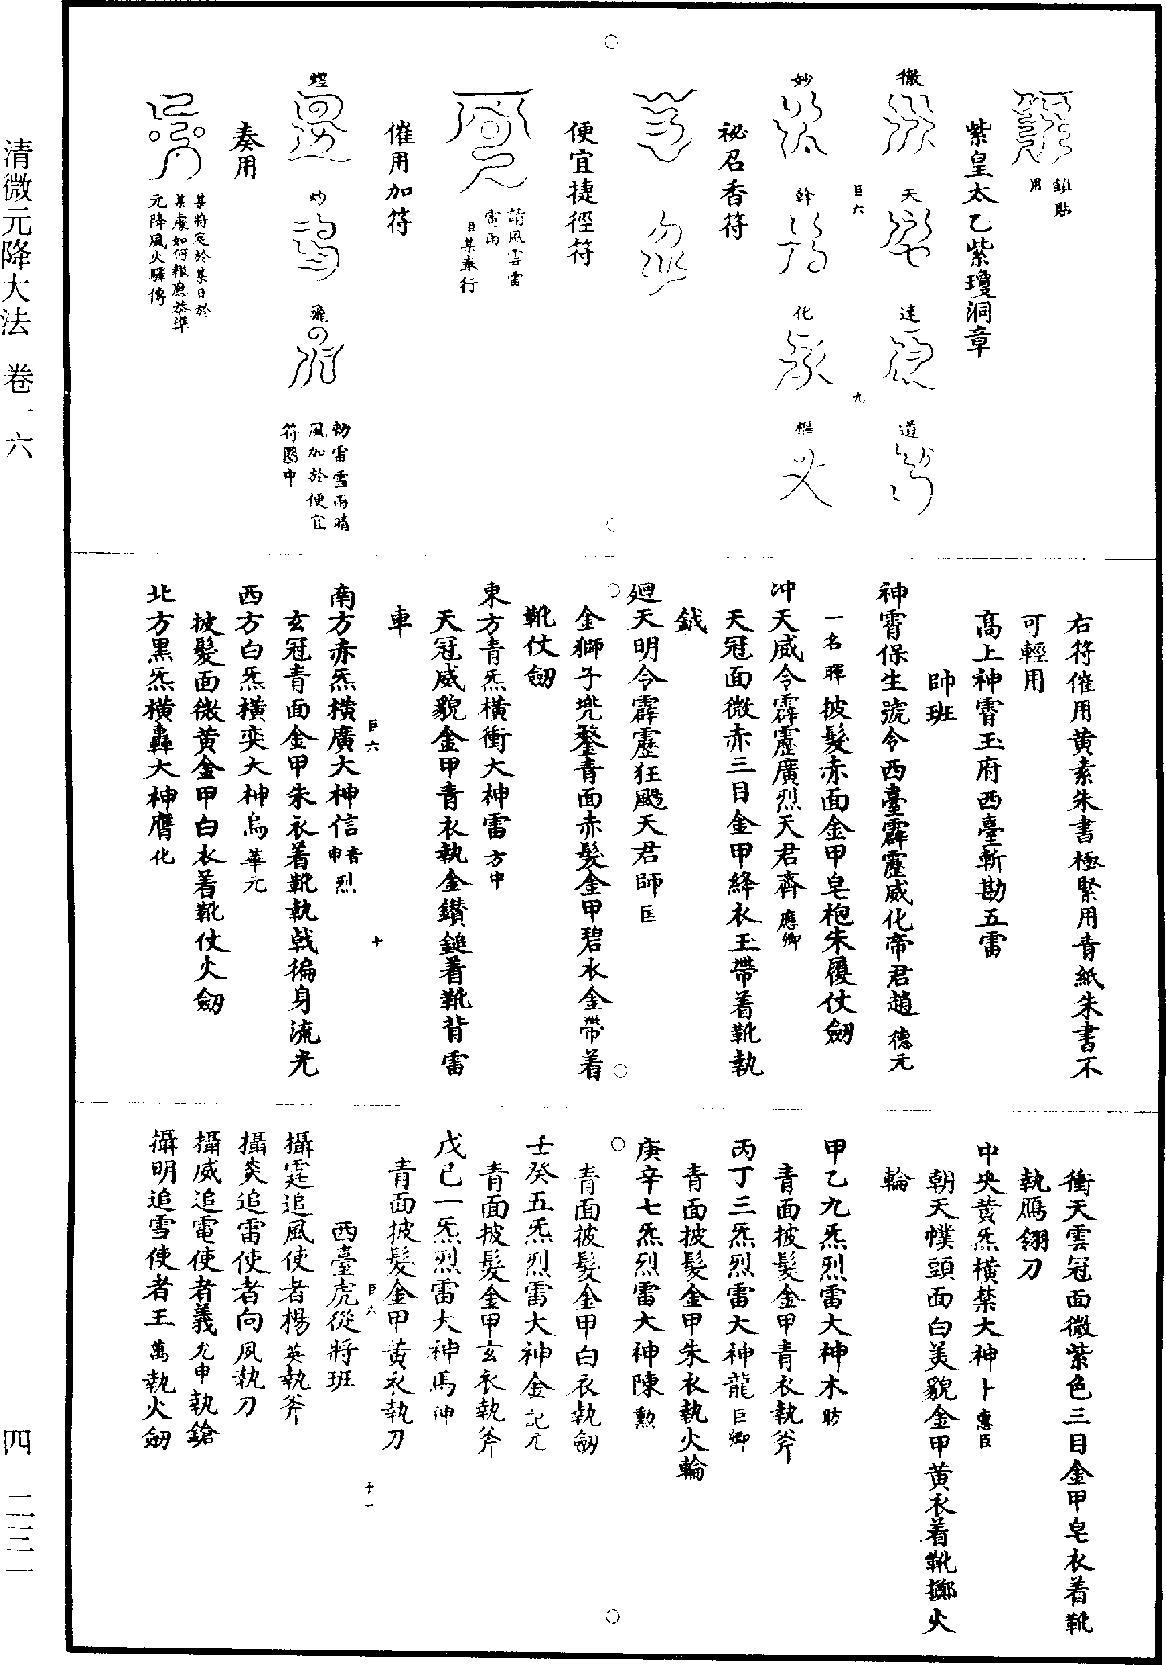 錐貼
用
紫皇太乙紫瓊洞章
徹 天 達 道
巨六 九
妙 幹 化 樞
祕召香符
便宜捷徑符
請風雲雷
雷雨
日某奉行
催用加符
煜 炒 飛
勅雷雪雨晴
風加於便宜
符圈中
奏用
某符定於某日於
某處如何報應恭準
元降風火驛傳
右符催用黃素朱書極緊用青紙朱書不
可輕用
高上神霄玉府西臺斬勘五雷
帥班
神霄保生號令西臺霹靂威化帝君趙德元
一名暉披髮赤面金甲皂袍朱履仗劒
沖天威令霹靂廣烈天君齊應卿
天冠面微赤三目金甲絳衣玉帶着靴執
鉞
廻天明令霹靂狂飈天君師臣
金獅子兜鍪青面赤髮金甲碧衣金帶着
靴仗劒
東方青炁橫衝大神雷方中
天冠威貌金甲青衣執金鑽鎚着靴背雷
車
巨六 十
南方赤炁橫廣大神信青烈申
玄冠青面金甲朱衣着靴執戟徧身流光
西方白炁橫奕大神烏華元
披髮面微黃金甲白衣着靴仗火劒
北方黑炁橫轟大神膺化
衝天雲冠面微紫色三目金甲皂衣着靴
執鴈翎刀
中央黃炁橫禁大神卜惠臣
朝天幞頭面白美貌金甲黃衣着靴擲火
輪
甲乙九炁烈雷大神木昉
青面披髮金甲青衣執斧
丙丁三炁烈雷大神龍巨卿
青面披髮金甲朱衣執火輪
庚辛七炁烈雷大神陳勲
青面披髮金甲白衣執劒
壬癸五炁烈雷大神金記元
青面披髮金甲玄衣執斧
戊己一炁烈雷大神馬冲
青面披髮金甲黃衣執刀
巨六 十一
西臺虎從將班
攝霆追風使者楊英執斧
攝炎追雷使者向夙執刀
攝威追電使者義尤申執鎗
攝明追雪使者王萬執火劒
清微元降大法 卷一六
四 二三一